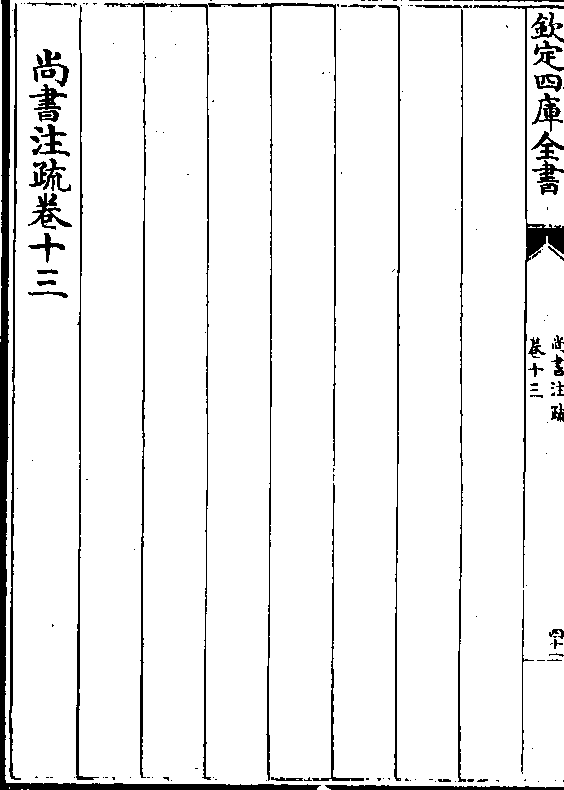 欽定四庫全書
尚書注疏
卷十三
尚書注疏卷十三